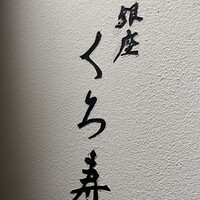 銀座
くろ寿